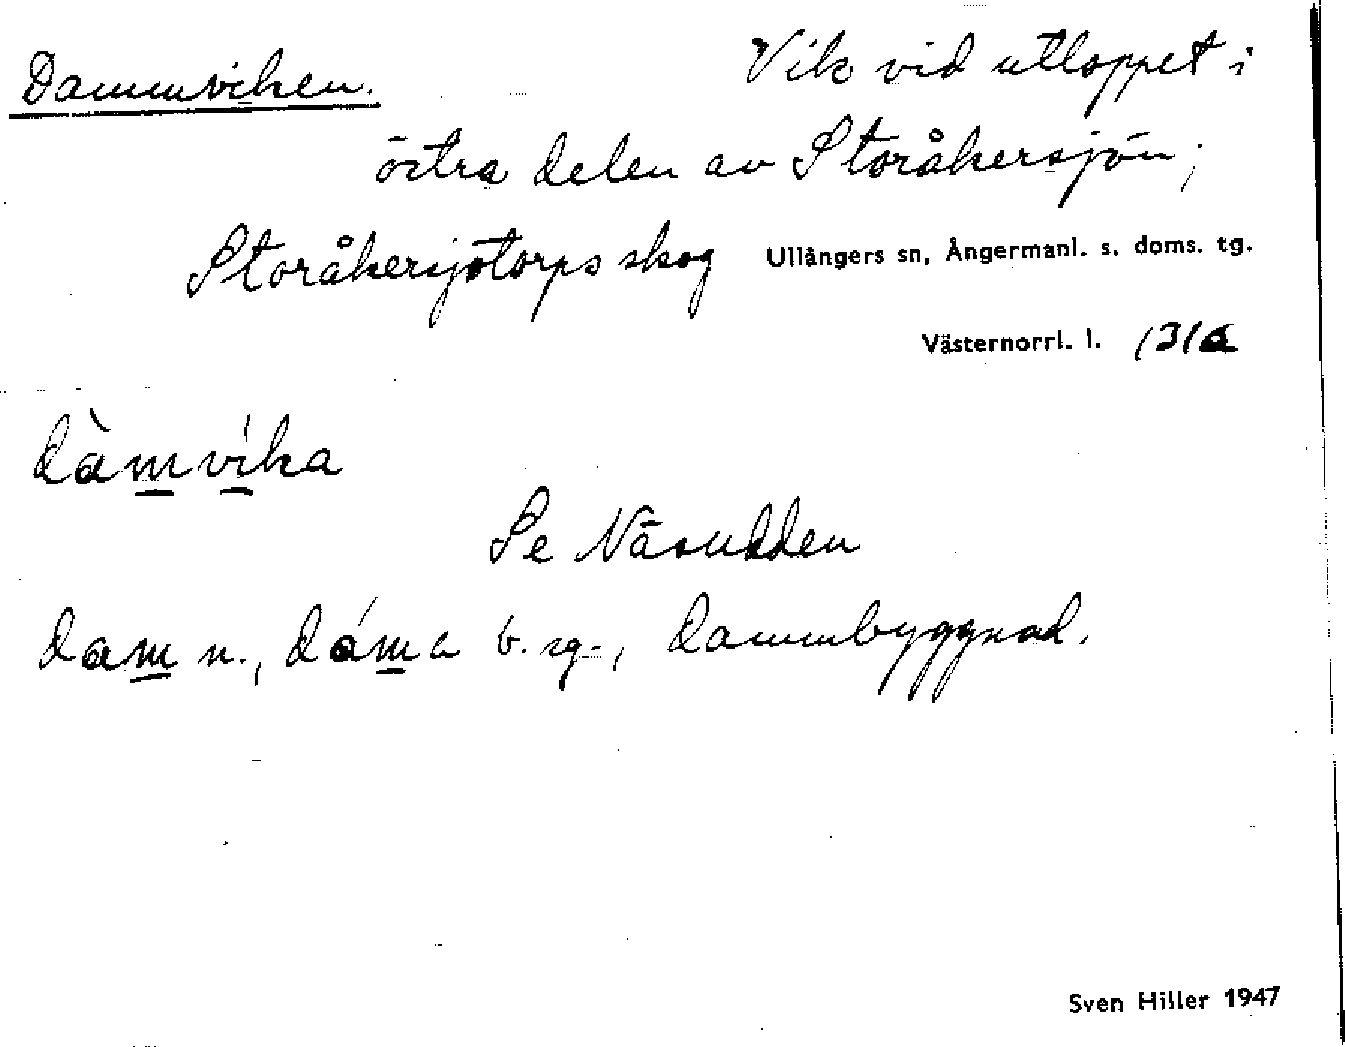 Dammviken. Vik vid utloppet i
östra delen av Storåkersjön;
Storåkersjötorps skog Ullångers sn, Ångermanl. s. doms. tg.
Västernorrl. l. 131a
dàmvíka
Se Näsudden
dam n., dáma b. sg., dammbyggnad.
Sven Hiller 1947